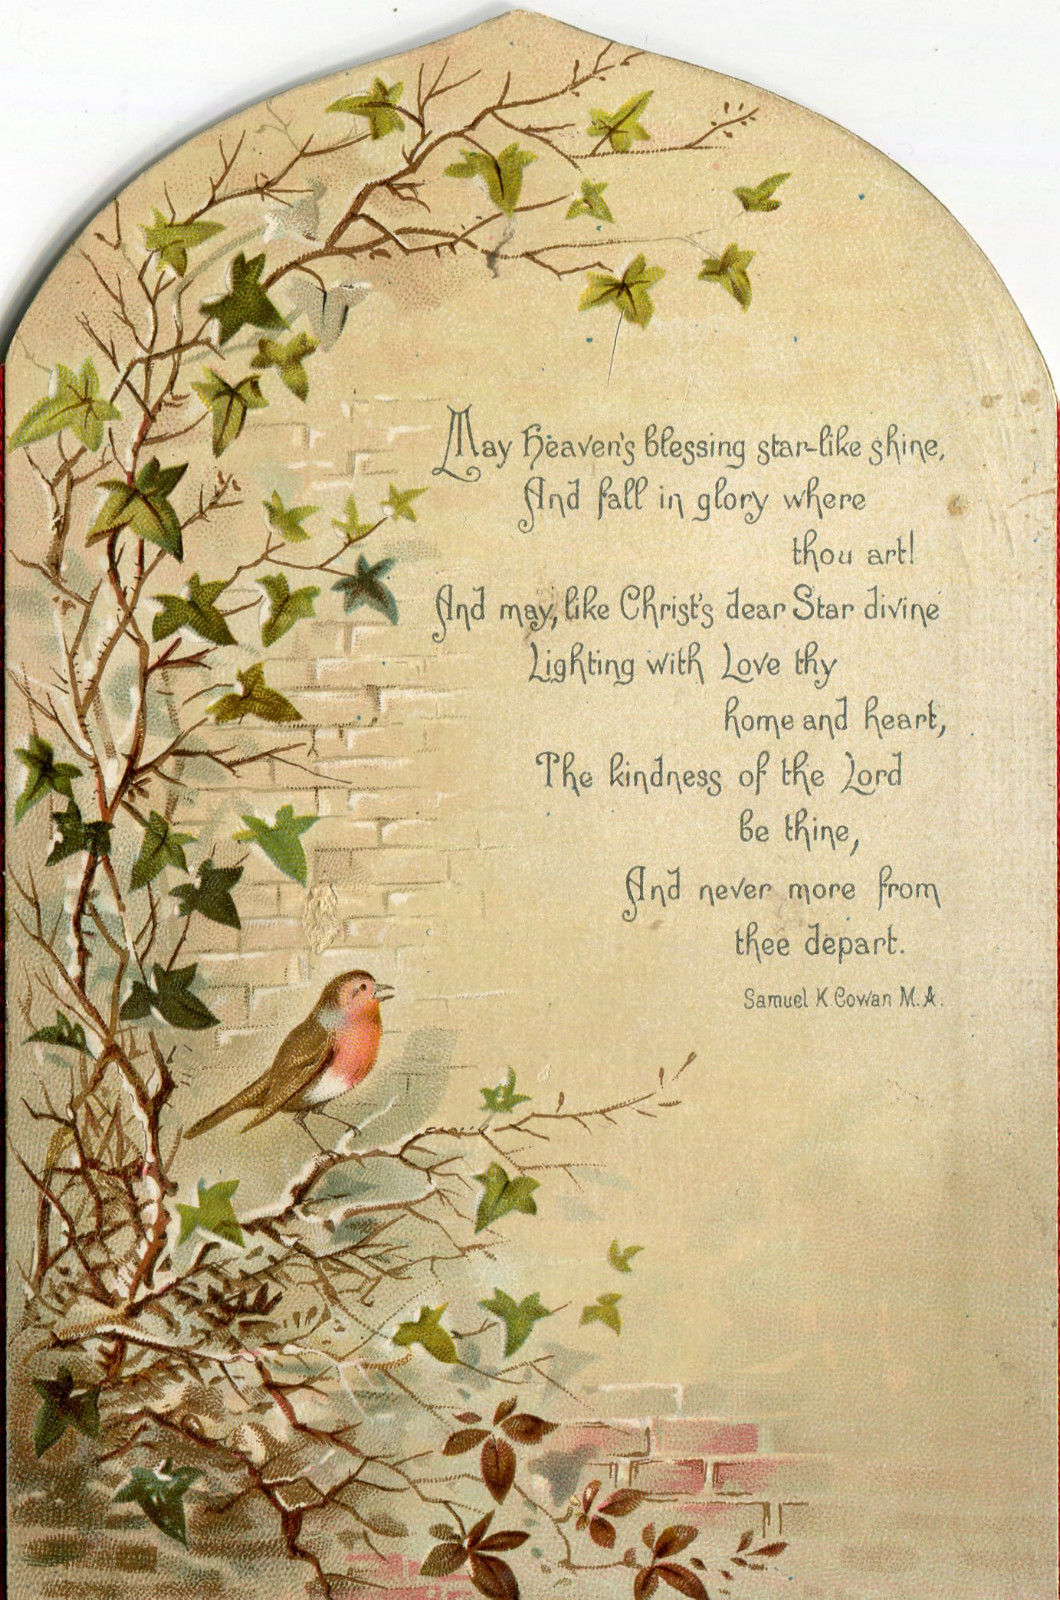 May Heaven's blessing star-like shine,
And fall in glory where
thou art!
And may, like Christ's dear Star divine
Lighting with Love thy
home and heart,
The kindness of the Lord
be thine,
And never more from
thee depart.
Samuel K Cowan M.A.